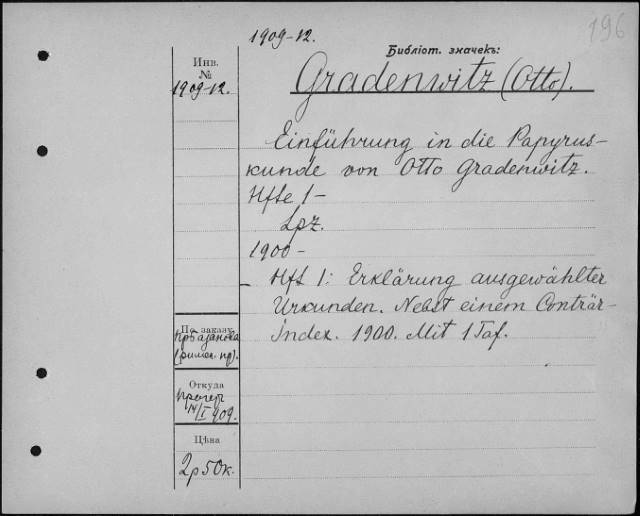 196
1909-12.
Библіот. значекъ:
Инв.
№
1909-12.
Gradenwitz (Otto).
Einführung in die Papyrus-
kunde von Otto Gradenwitz.
Hfte 1-
Lpz.
1900-
- Hft 1: Erklärung ausgewählter
Urkunden. Nebst einem Conträr-
index. 1900. Mit 1 Taf.
По заказу
(римск. пр).
Откуда
14/I 909.
Цѣна
2р50к.